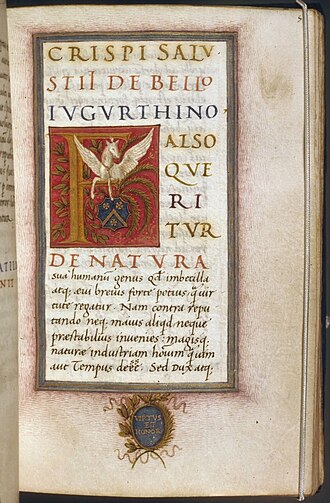 CRISPI SALV
STII DE BELLO
IVGVRTHINO
FALSO
QVE
RI
TVR
DE NATVRA
sua humanū genus qđ imbecilla
atq. æui breuius forte potius q̄ uir
tute regatur. Nam contra repu
tando neq. maius aliqđ neque
præstabilius inuenies: magisq.
naturæ industriam hoīum quam
aut Tempus deēe. Sed Dux atq.
VIRTVS
ET
HONOR